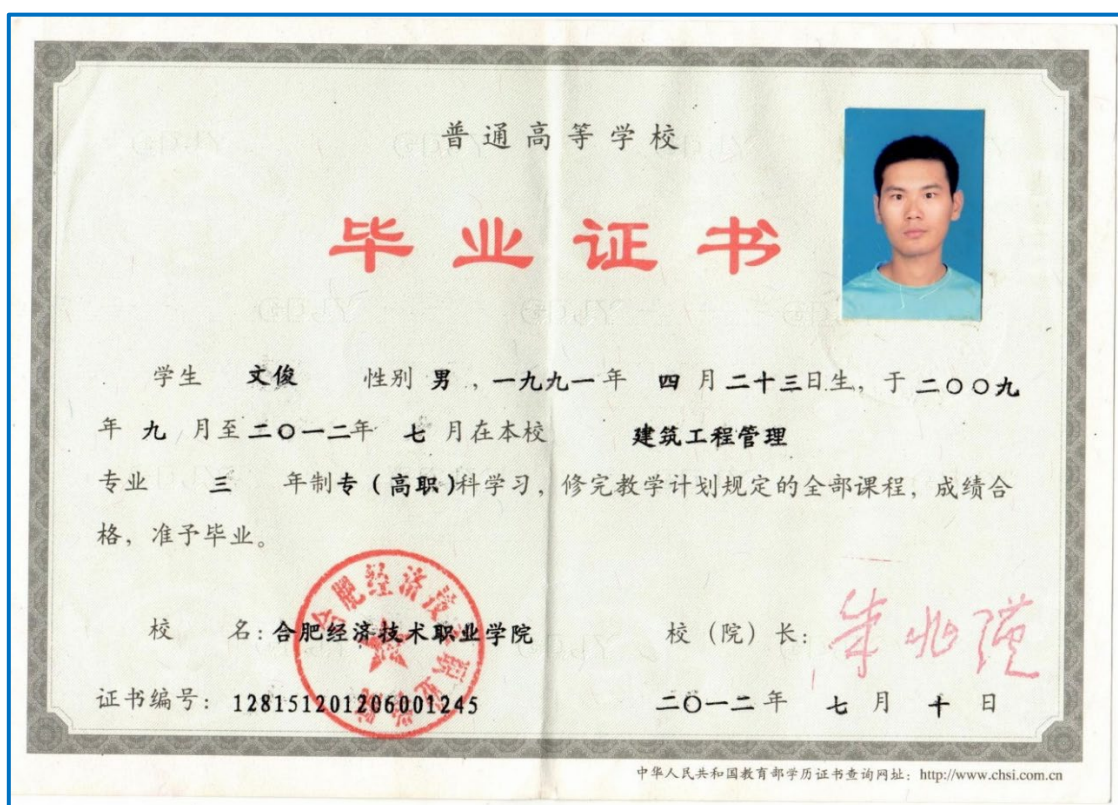 普通高等学校
毕业证书
学生 文俊 性别 男 ，一九九一年 四 月二十三日生，于 二〇〇九
年 九 月至二〇一二年 七 月在本校 建筑工程管理
专业 三 年制专（高职）科学习，修完教学计划规定的全部课程，成绩合
格，准予毕业。
合肥经济技术职业学院
校 名：合肥经济技术职业学院 校（院）长：
证书编号：128151201206001245 二〇一二年 七 月 十 日
中华人民共和国教育部学历证书查询网址：http://www.chsi.com.cn